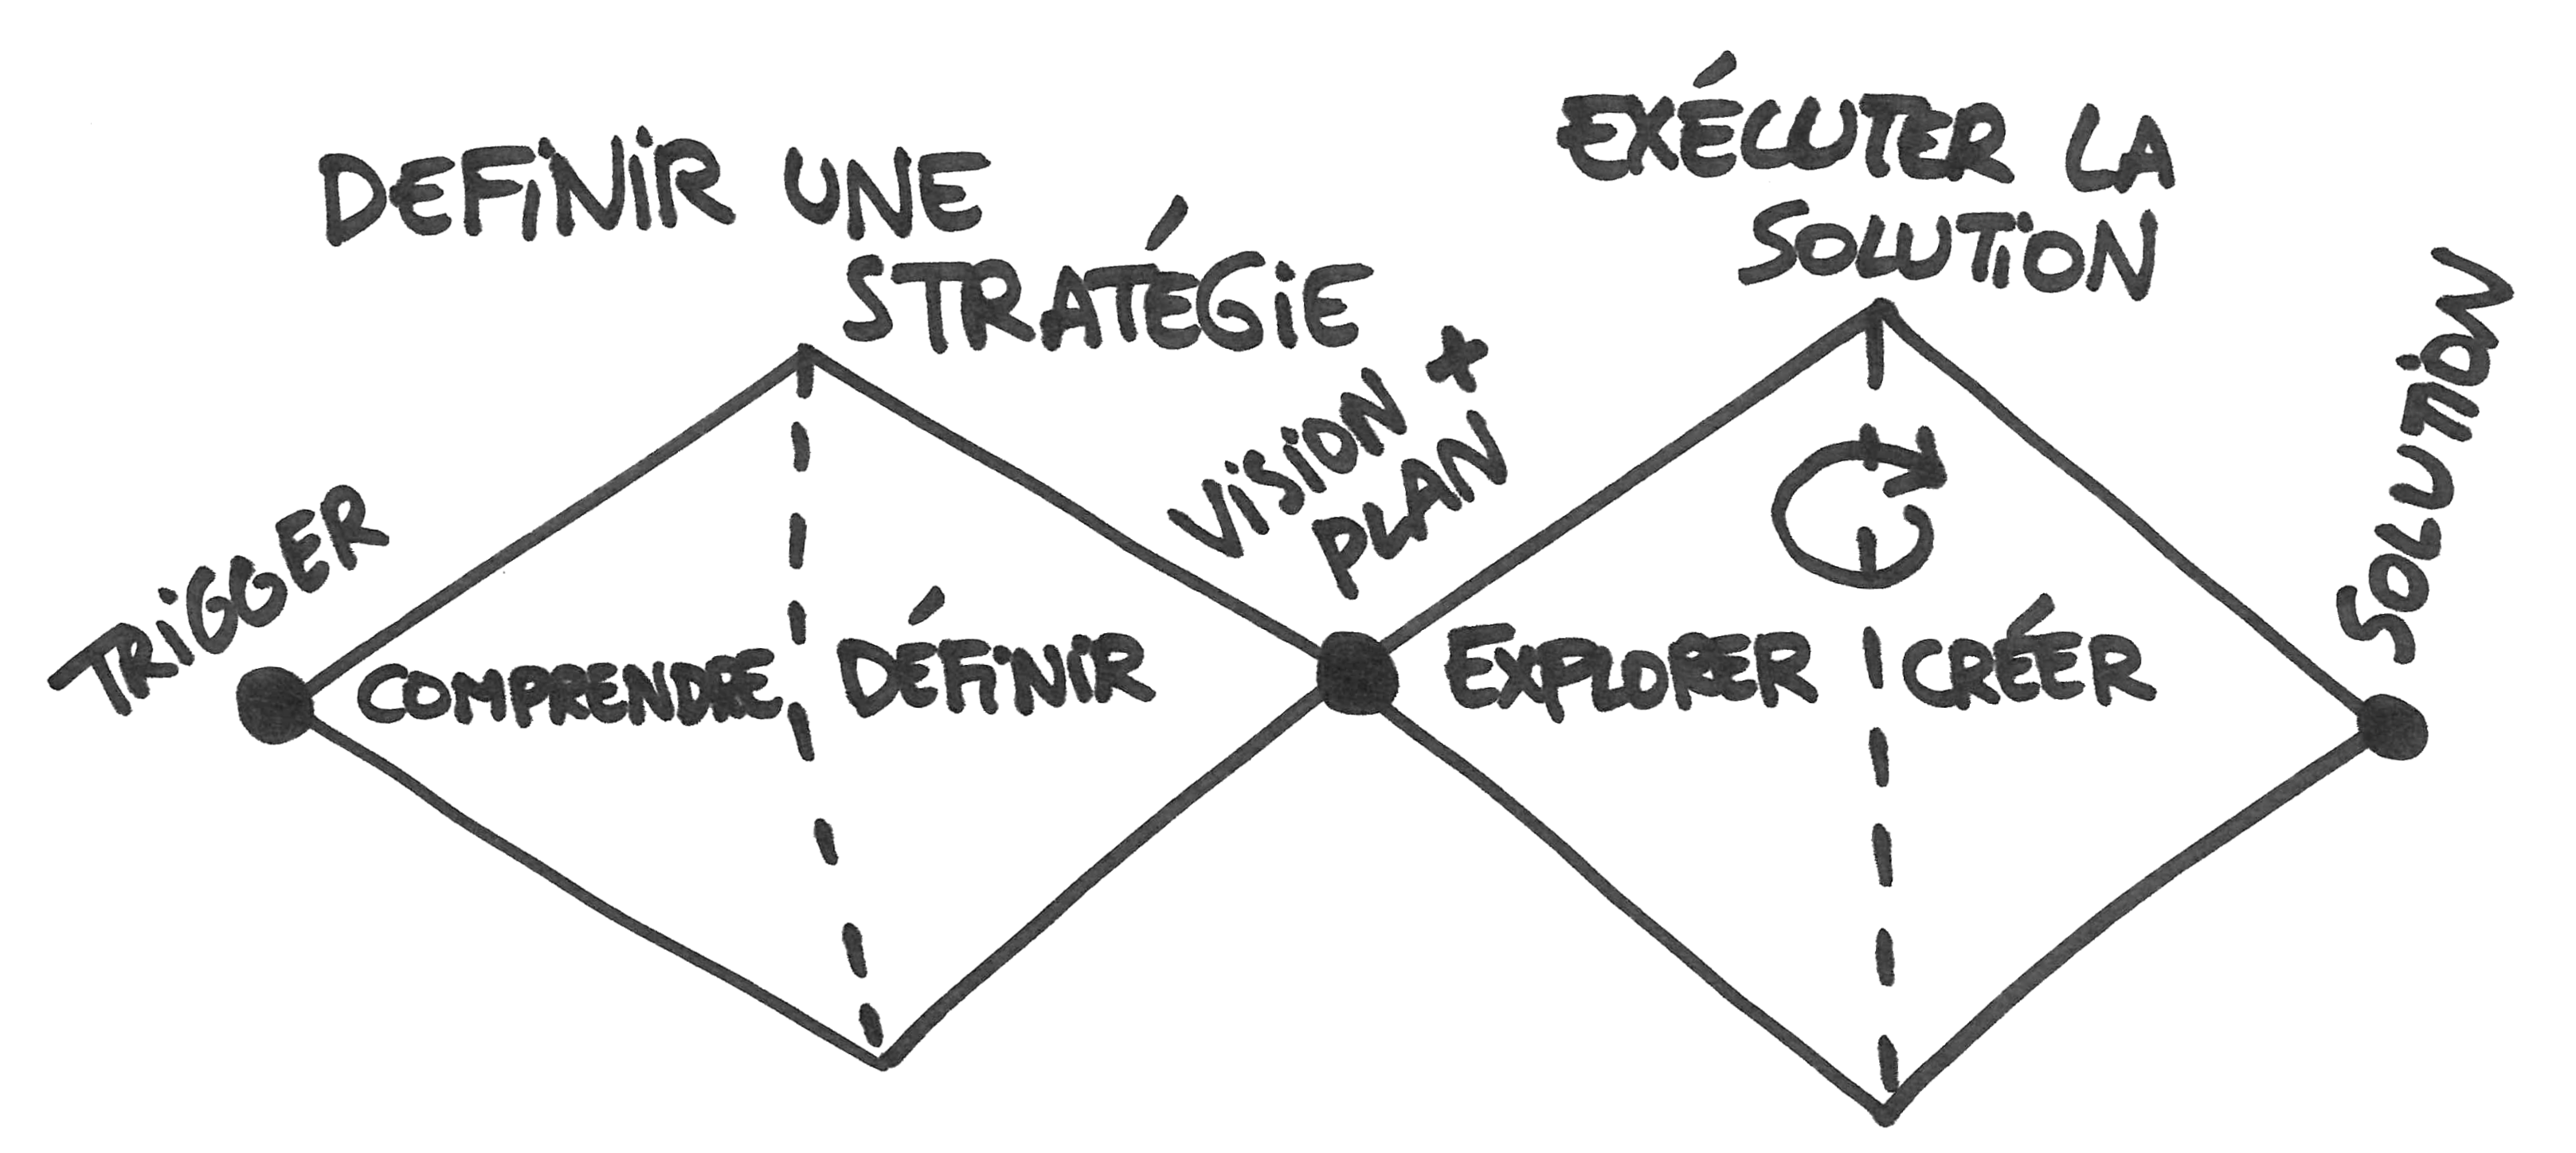 DEFINIR UNE
STRATÉGIE
EXÉCUTER LA
SOLUTION
TRIGGER
COMPRENDRE
DÉFINIR
VISION +
PLAN
EXPLORER
CRÉER
SOLUTION